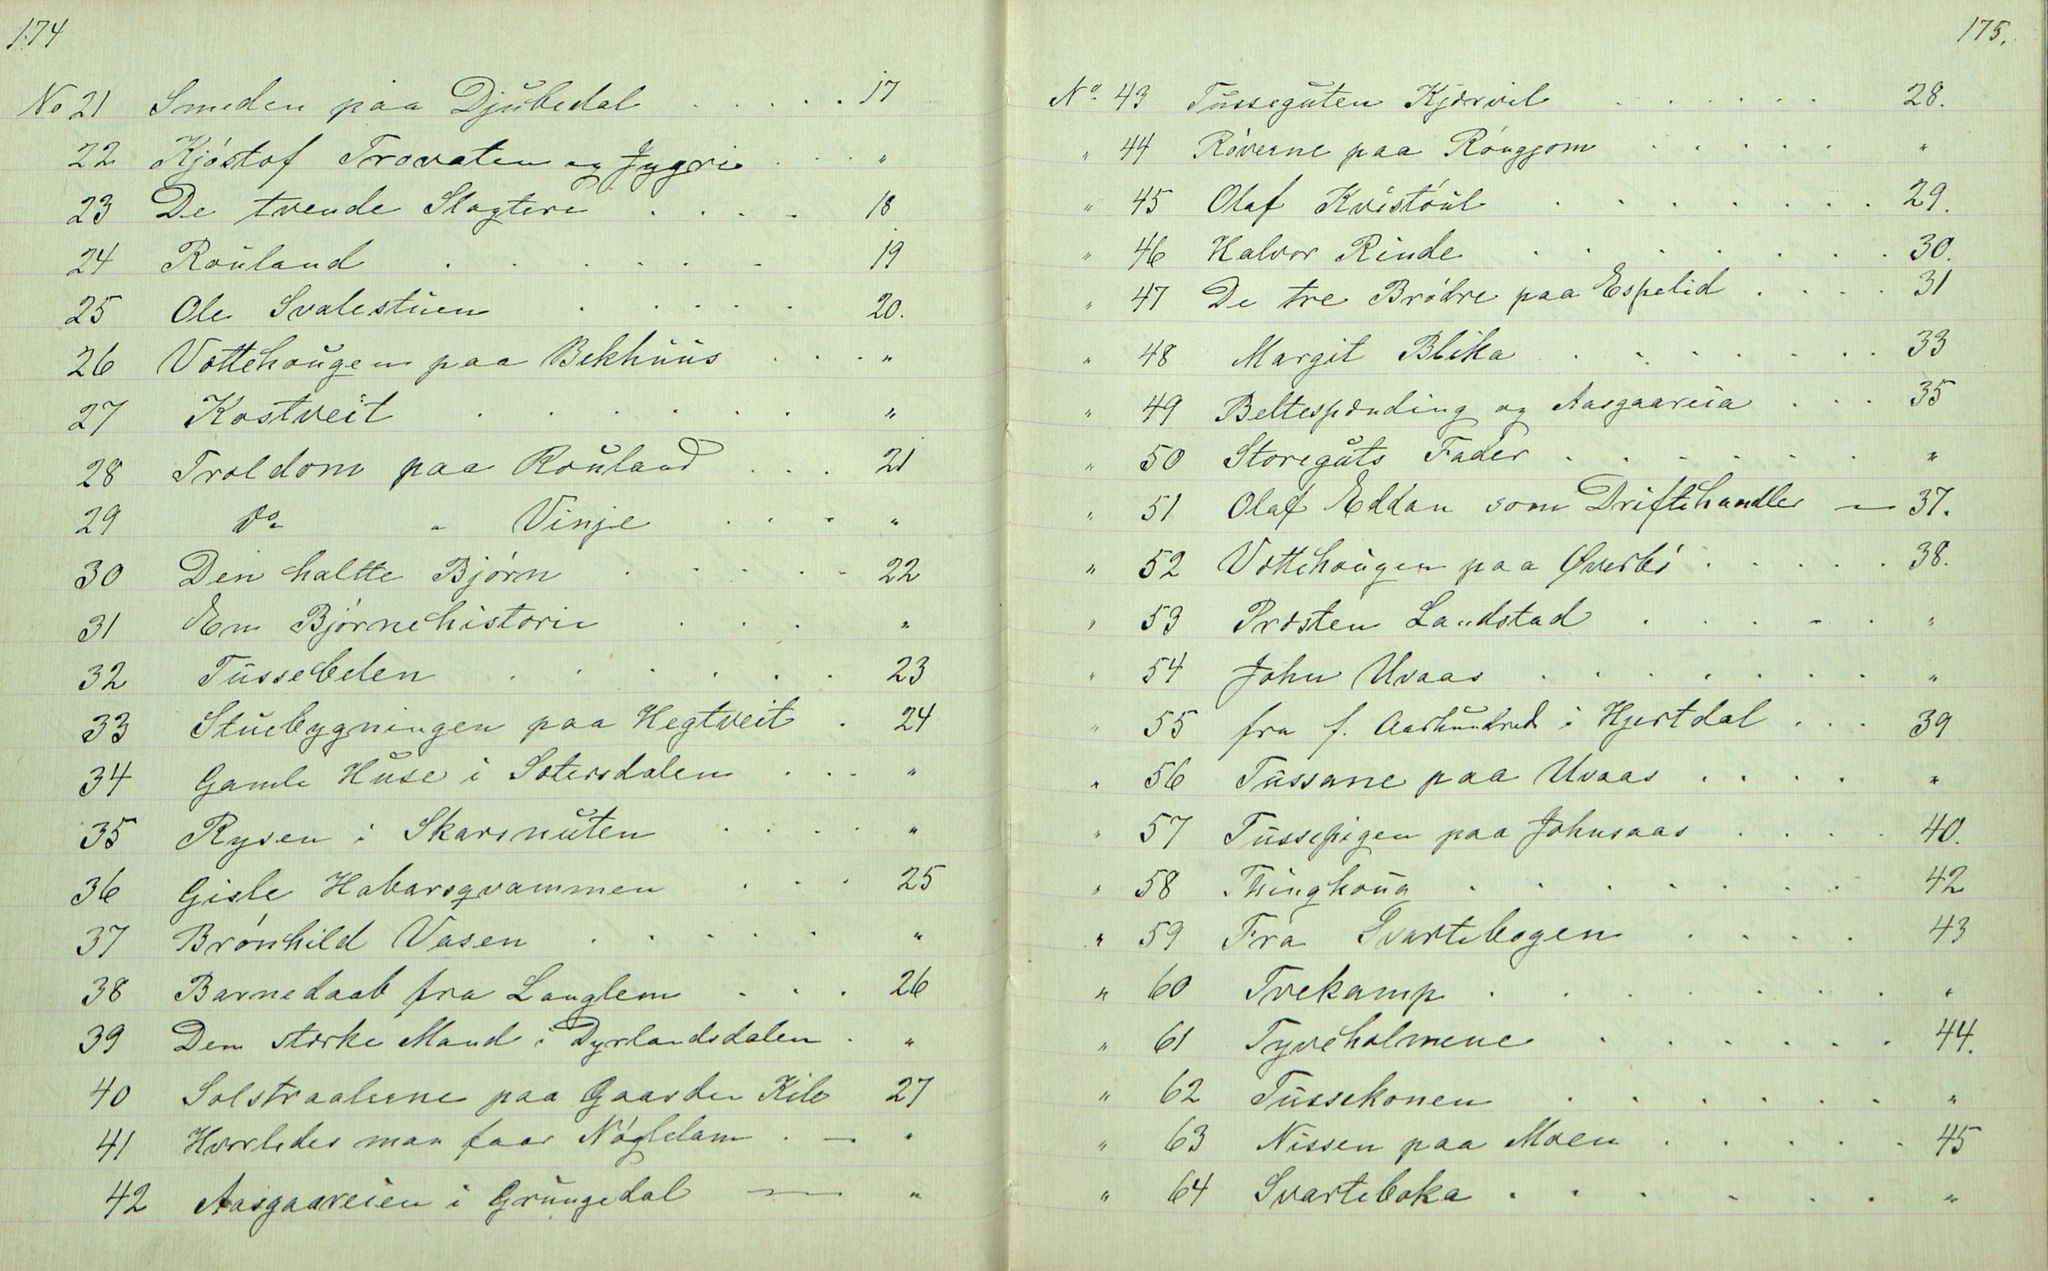 174
No 21 Smeden paa Djubedal . . . . . 17
22 Kjöstof Trovaten og Jygri . . . "
23 De tvende Slagtere . . . . 18
24 Rouland . . . . . . 19
25 Ole Svalestuen . . . . . 20.
26 Vottehougen paa Bekhuus . . . "
27 Kostveit . . . . . . "
28 Troldom paa Rouland . . . 21
29 do " Vinje . . . "
30 Den haltte Björn . . . . . 22
31 En Björnehistorie . . . "
32 Tussebelen . . . . . . 23
33 Stuebygningen paa Hegtveit . 24
34 Gamle Huse i Sætersdalen . . . "
35 Rysen i Skarsnuten . . . . "
36 Gisle Habarsqvammen . . . 25
37 Brönhild Vasen . . . . . "
38 Barnedaab fra Langlem . . . 26
39 Den stærke Mand i Dyrlandsdalen . "
40 Solstraalerne paa Gaarden Kile 27
41 Hvorledes man faar Nöglelam . — "
42 Aasgaareien i Grungedal — "
175.
No. 43 Tusseguten Kjörvil . . . . . 28.
" 44 Röverne paa Rönggom . . . . . "
" 45 Olaf Kvistöul . . . . . . . 29.
" 46 Halvor Rinde . . . . . . . 30.
" 47 De tre Brödre paa Espelid . . . . 31
" 48 Margit Blika . . . . . . . 33
" 49 Beltespænding og Aasgaareia . . . 35
" 50 Storeguts Fader . . . . . . "
" 51 Olaf Eddan som Driftehandler — 37.
" 52 Vottehougen paa Øverbö . . . . . 38.
" 53 Præsten Landstad . . . . . "
" 54 John Uvaas . . . . . . . "
" 55 fra f. Aarhundred i Hjertdal . . . 39
" 56 Tussane paa Uvaas . . . . "
" 57 Tussepigen paa Johnsaas . . . . 40.
" 58 Thinghoug . . . . . . . 42
" 59 Fra Svartebogen . . . . 43
" 60 Tvekamp . . . . . . . "
" 61 Tyveholmene . . . . . . 44.
" 62 Tussekonen . . . . . . "
" 63 Nissen paa Moen . . . . . 45
" 64 Svarteboka . . . . . . "